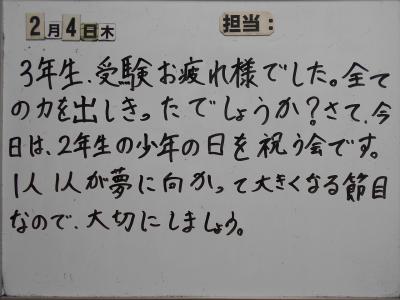 2月4日木 担当:
3年生、受験お疲れ様でした。全て
の力を出しきったでしょうか?さて、今
日は、2年生の少年の日を祝う会です。
1人1人が夢に向かって大きくなる節目
なので、大切にしましょう。